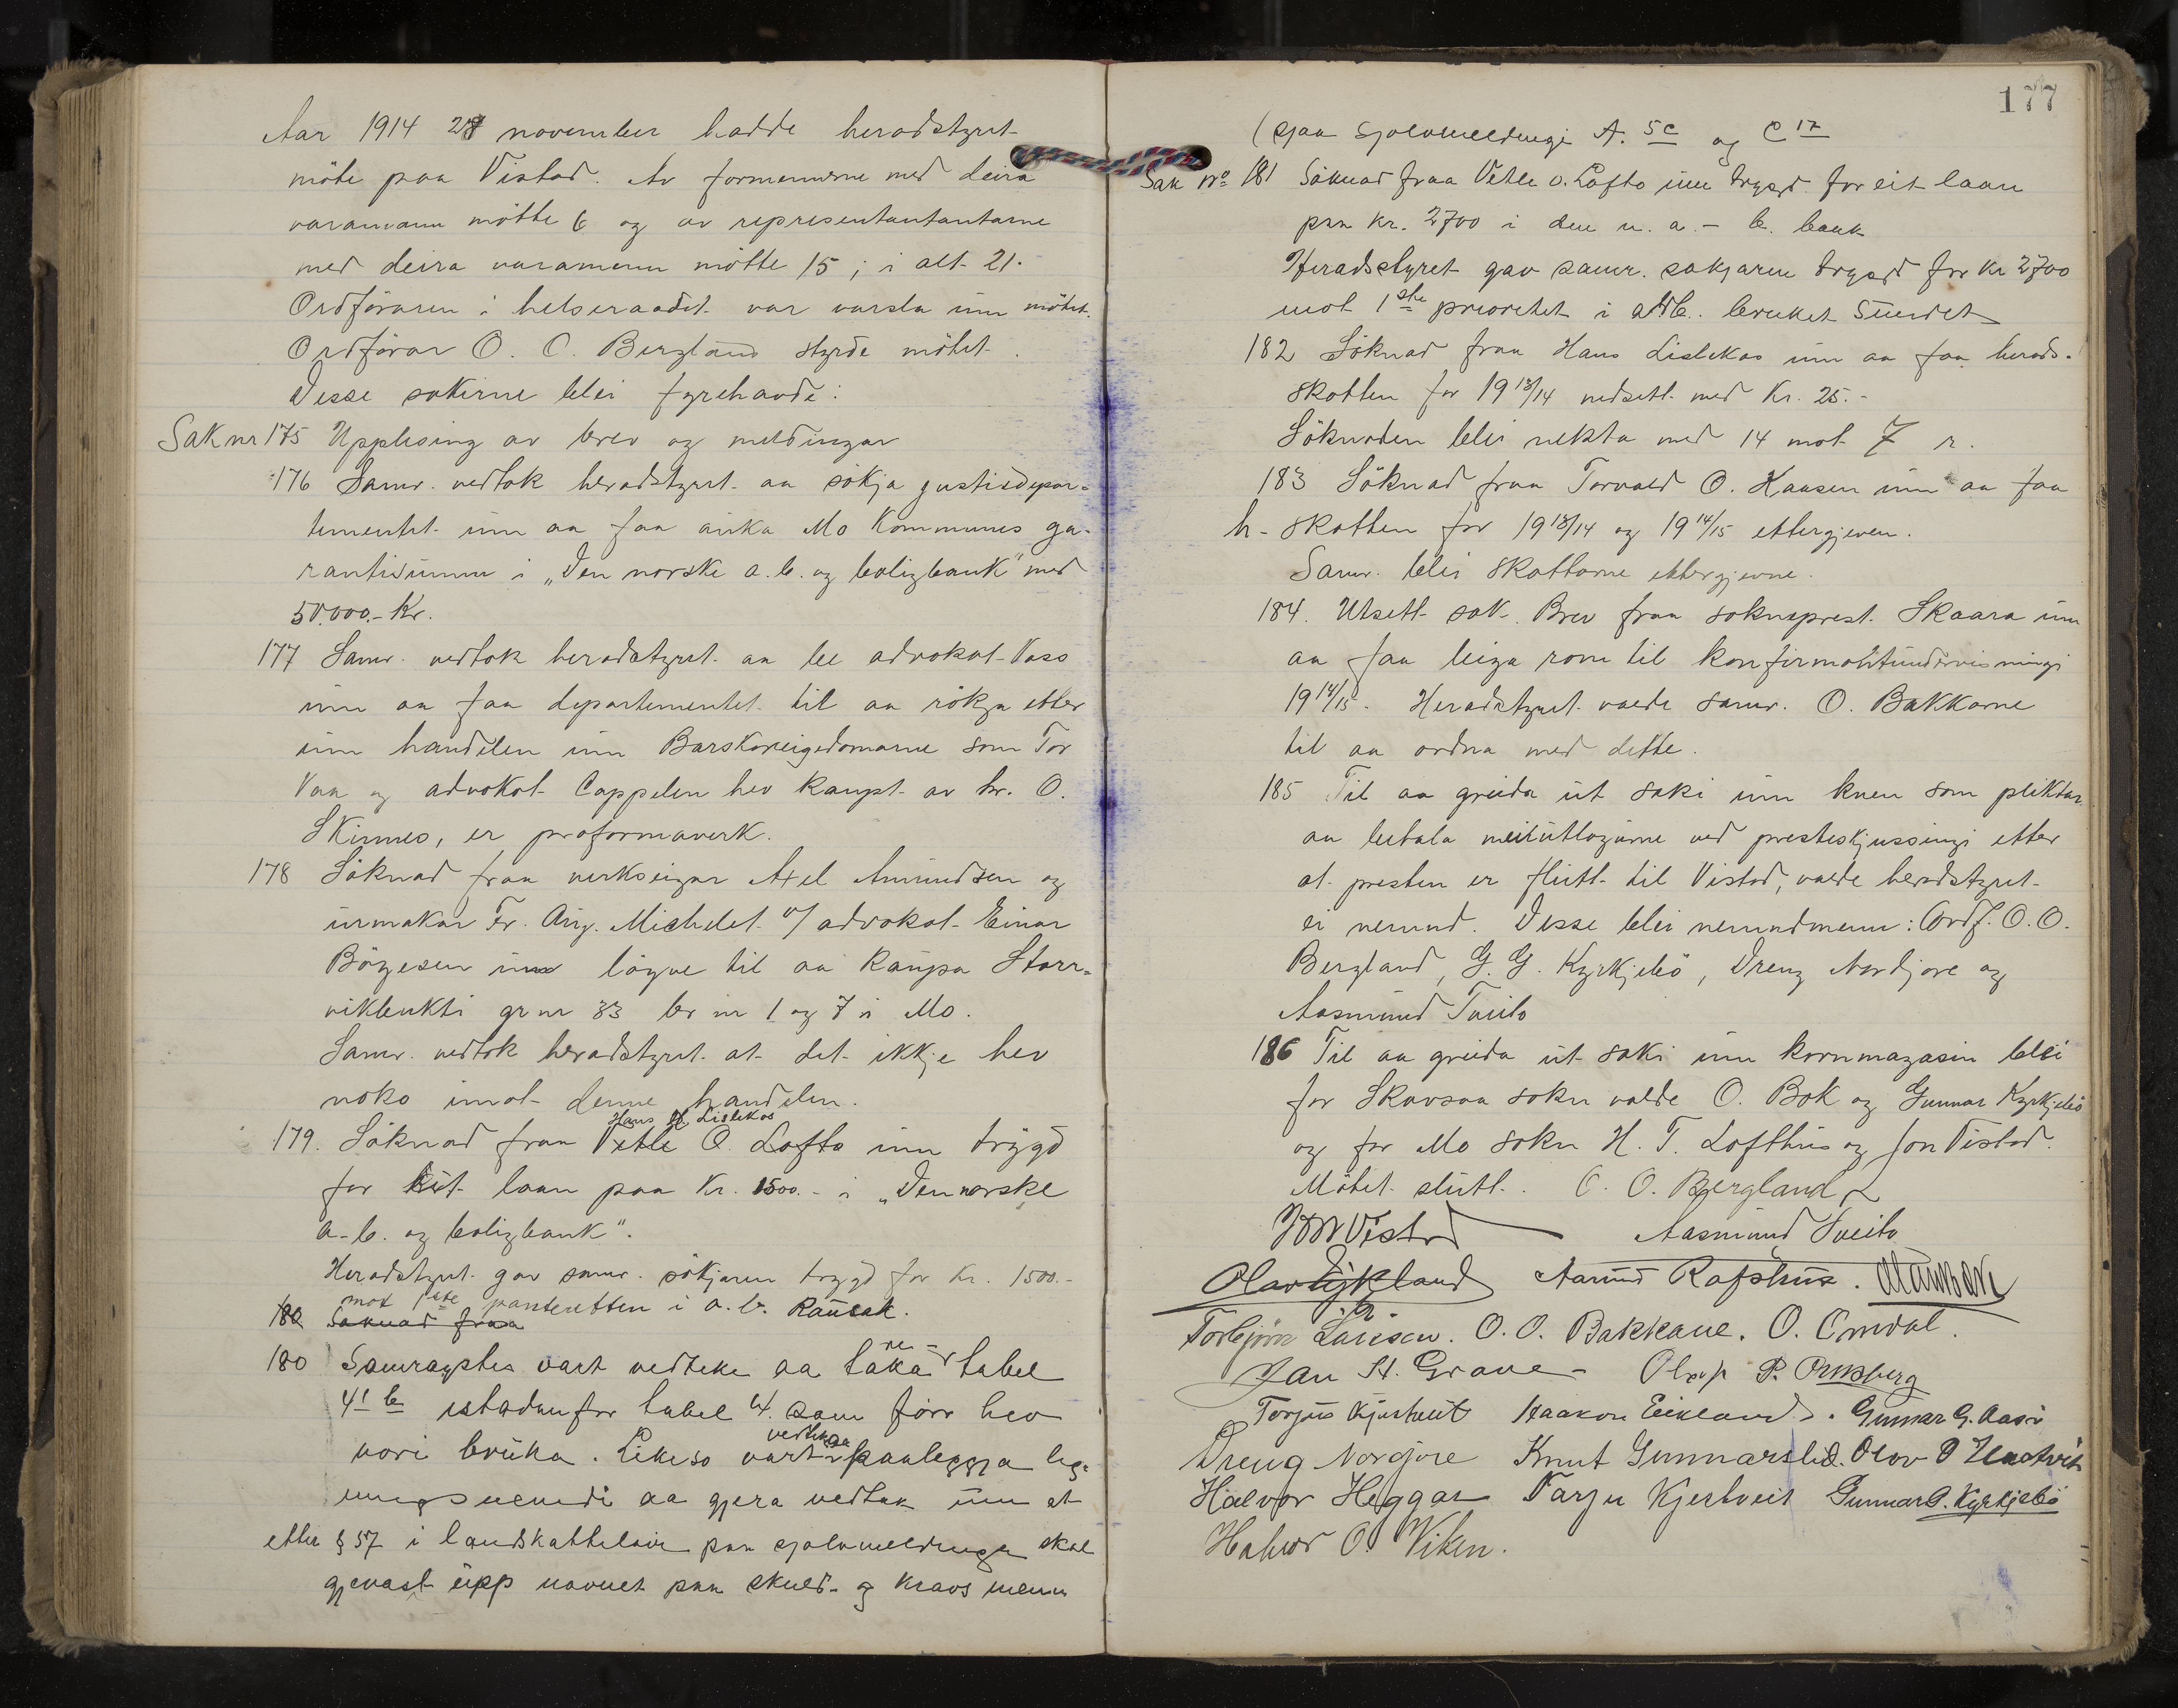 Aar 1914 28 november hadde heradstyret
möte paa Vistad. Av formennerne med deira
varamann mötte 6 og av representantantarne
med deira varamenn mötte 15; i alt 21.
Ordföraren i helseraadet var varsla um mötet.
Ordförar O. O. Bergland styrde mötet.
Desse sakirne blei fyrehavde:
Sak nr 175 Upplesing av brev og meldingar
176 Samr. vedtok heradstyret aa sökja justisdepar-
tementet um aa faa auka Mo kommunes ga-
rantisumm i „Den norske a.b. og boligbank" med
50.000.- Kr.
177 Samr. vedtok heradstyret aa be advokat Vass
um aa faa departementet til aa rökja etter
um handelen um Barskareigedomarne som Tor
Vaa og advokat Cappelen hev kaupt av hr. O.
Skirnes, er proformaverk.
178 Söknad fraa verkseigar Axel Amundsen og
urmakar Fr. Aug. Michelet v/ advokat Einar
Börjesen um lögne til aa kaupa Storr-
vikbukti gr nr 33 br nr 1 og 7 i Mo.
Samr. vedtok heradstyret at det ikkje hev
noko imot denne handelen.
Hans H. Lislekas
179. Söknad fraa Vetle O. Lofto um trygd
for eit laan paa Kr. 1500.- i „Den norske
a.-b. og boligbank".
Heradstyret gav samr. sökjaren trygd for Kr. 1500.-
mot 1ste panteretten i a. b. Rausak.
180 Söknad fraa
180 Samrøystes vart vedteke aa bruka tabel
4 b istadenfor tabel 4. som förr hev
vori bruka. Likeso vart vedteke paalegga lig-
ningsnemdi aa gjera vedtak um at
etter § 57 i landskattelovi paa sjølvmeldinga skal
gjevast upp navnet paa skuld- og kravsmenn
177
(sjaa Sjolvmeldingi A. 5c og C 17
Sak No 181 Söknad fraa Vetle O. Lofto um trygd for eit laan
paa kr. 2700 i den n. a.- b. bank
Heradstyret gav samr. sökjaren trygd for kr 2700
mot 1ste prioritet i a.b. bruket Sundet
182 Söknad fraa Hans Lislekas um aa faa herads-
skatten for 1913/14 nedsett med Kr. 25.-
Söknaden blei nekta med 14 mot 7 r.
183 Söknad fraa Torvald O. Hansen um aa faa
h- skatten for 1913/14 og 1914/15 ettergjeven.
Samr. blei skattarne ettergjevne.
184. Utsett sak. Brev fraa sokneprest Skaara um
aa faa leiga rom til konfirmantundervisningi
1914/15. Heradstyret valde samr. O. Bakkane
til aa ordna med dette.
185 Til aa greida ut saki um kven som pliktar
aa betala meirutlogurne ved presteskjussingi etter
at presten er flutt til Vistad, valde heradstyret
ei nemnd. Desse blei nemndmenn: Ordf. O. O.
Bergland, G. G. Kyrkjebö, Dreng Nordjore og
Aasmund Tveito
186 Til aa greida ut saki um kornmagasin blei
for Skavsaa sokn valde O. Bok og Gunnar Kyrkjebö
og for Mo sokn H. T. Lofthus og Jon Vistad.
Mötet slutt. O. O. Bergland
Jon Vistad Aasmund Tveito
Olav Eikland Aanund Rafshus.
Torbjörn Larsen. O. O. Bakkane. O. Omdal.
Jan H. Grave Olaf P. Ormsberg
Torjus Kjertveit Haakon Eikland. Gunnar G. Aasö
Dreng Nordjore Knut Gunnarslid. Olov O
Halvor Heggar Tarju Kjertveit Gunnar G. Kyrkjebö
Halvor O. Viken.